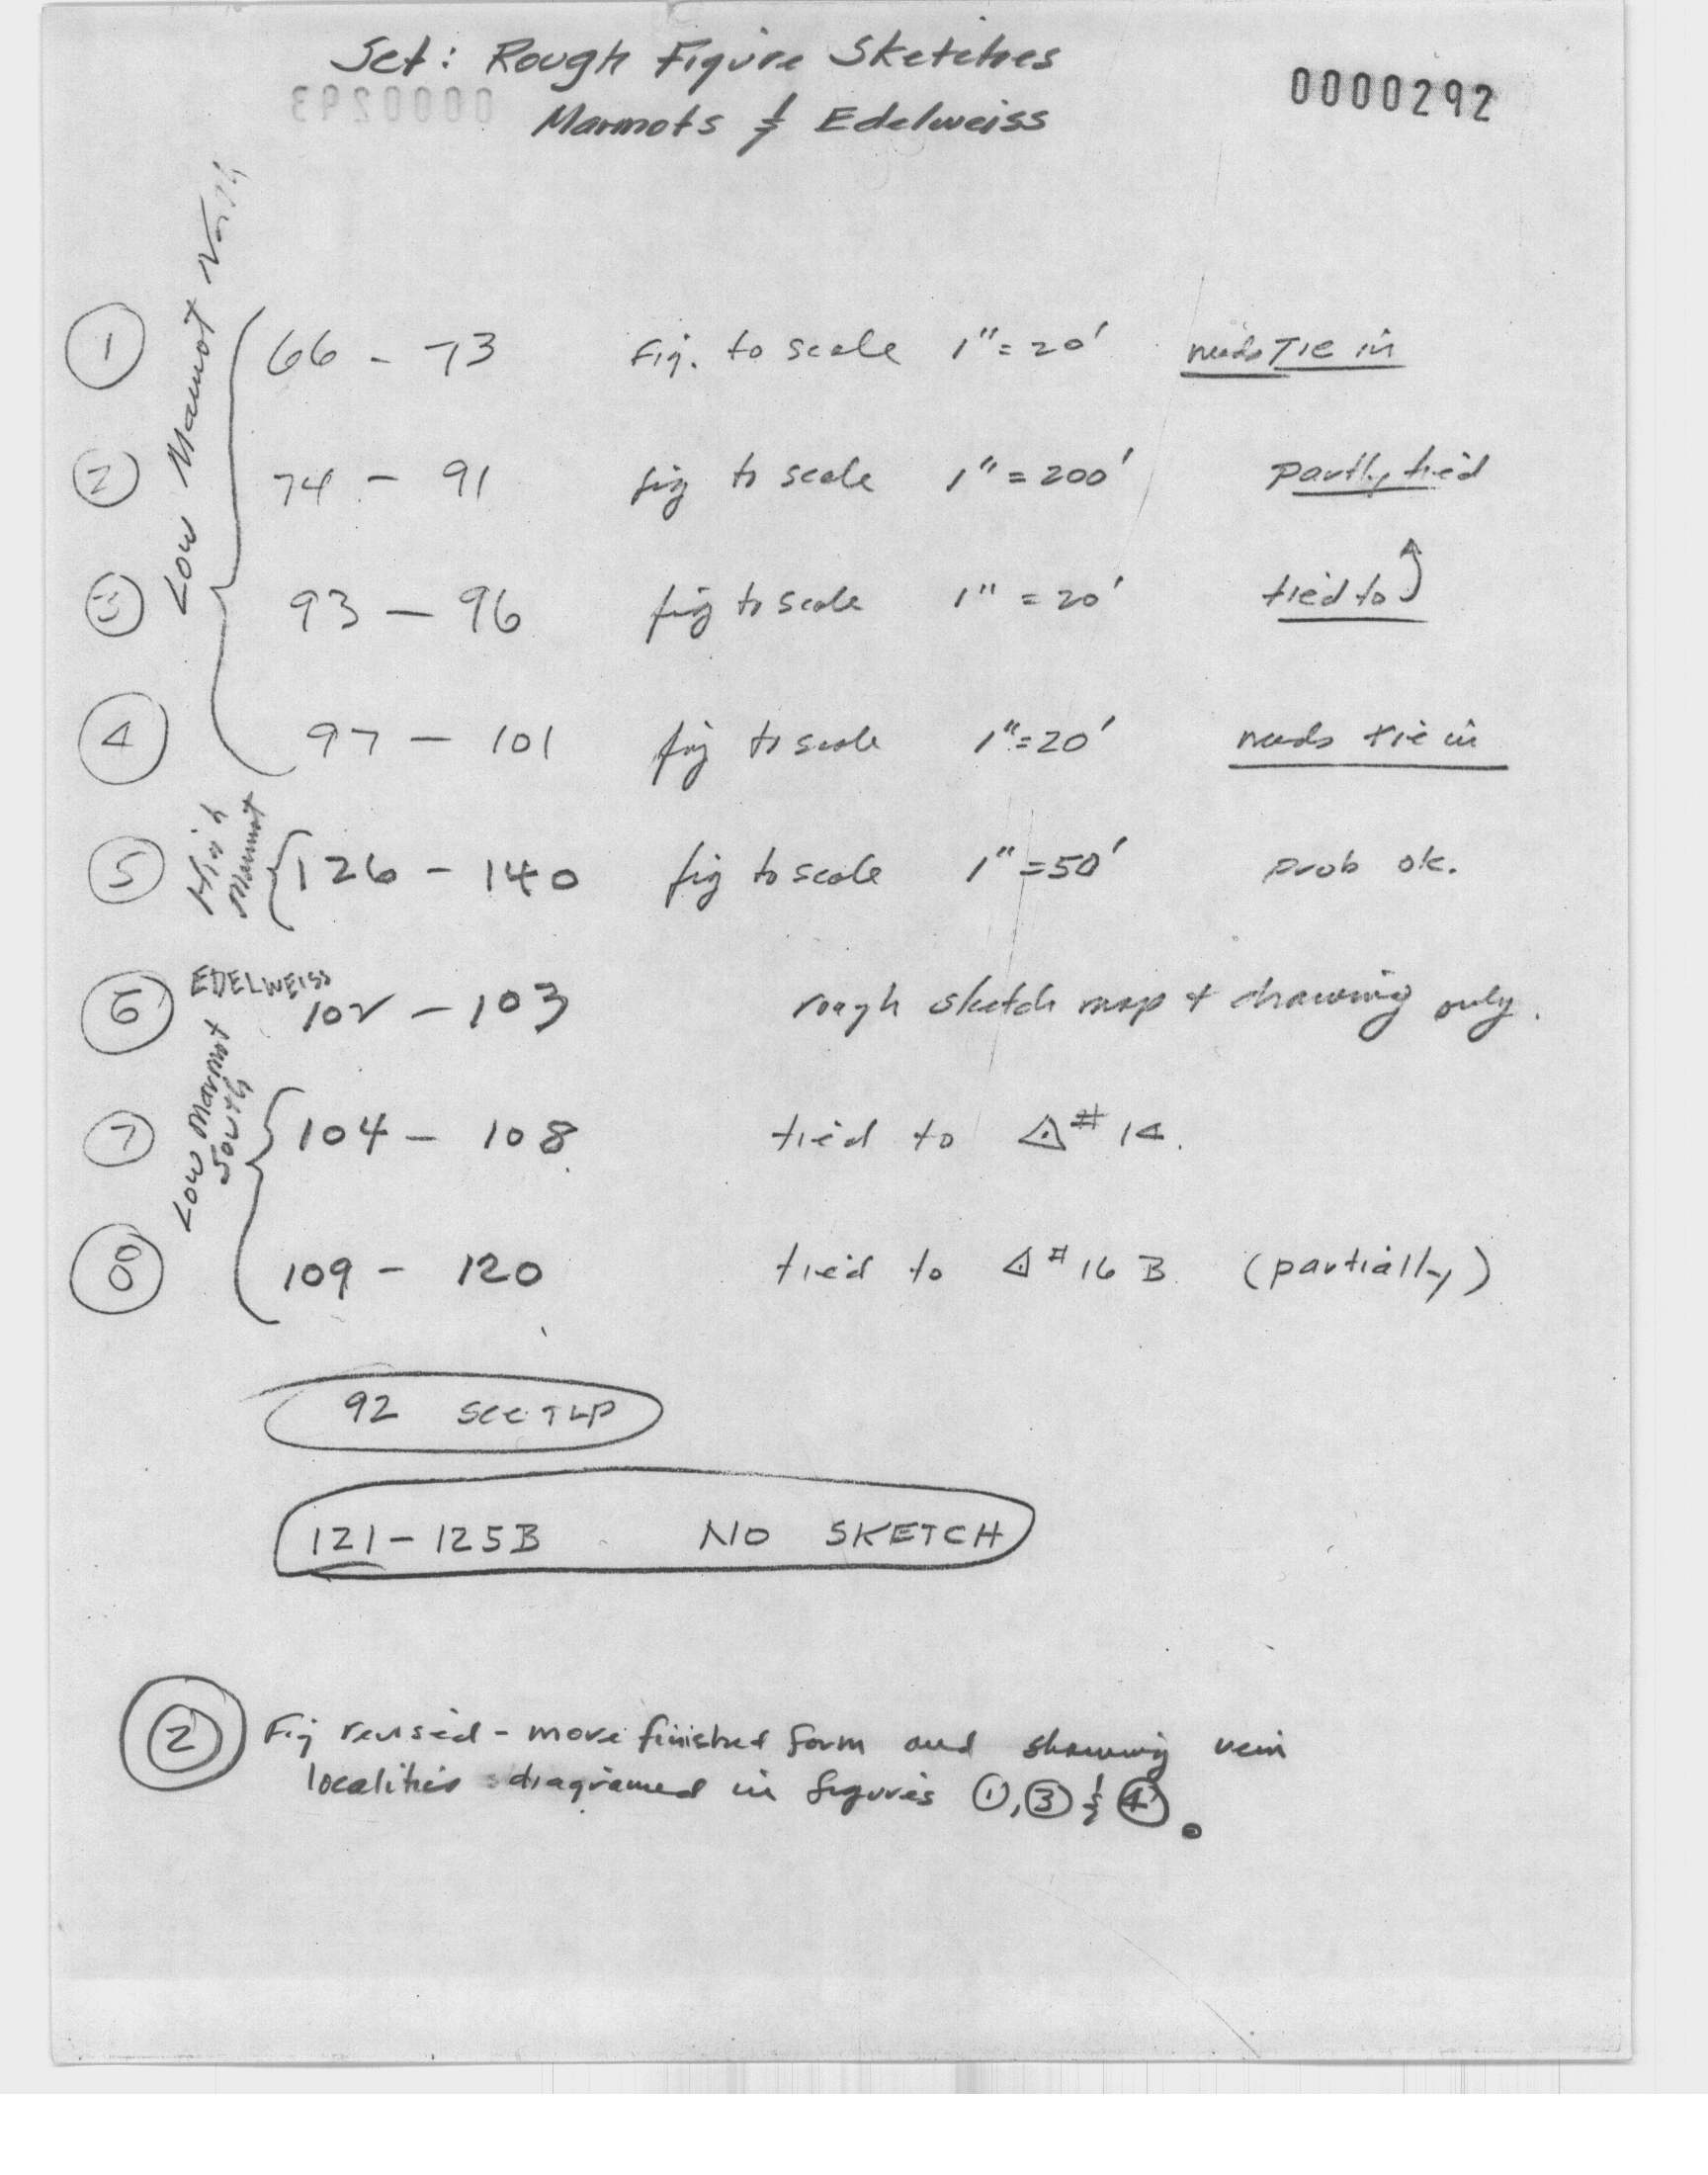 Set: Rough Figure Sketches
0000292
0000293
Marmots & Edelweiss
Low Marmot North
① 66 - 73 Fig. to scale 1" = 20' needs Tie in
② 74 - 91 fig to scale 1" = 200' partly tied
③ 93 - 96 fig to scale 1" = 20' tied to ↑
④ 97 - 101 fig to scale 1" = 20' needs tie in
High
Marmot
⑤ 126 - 140 fig to scale 1" = 50' prob ok.
EDELWEISS
⑥ 102 - 103 rough sketch map + drawing only.
Low Marmot
South
⑦ 104 - 108 tied to △ # 14.
⑧ 109 - 120 tied to △ # 16 B (partially)
92 see TLP
121 - 125B NO SKETCH
② Fig revised - more finished form and showing vein
localities diagramed in figures ①, ③ & ④.